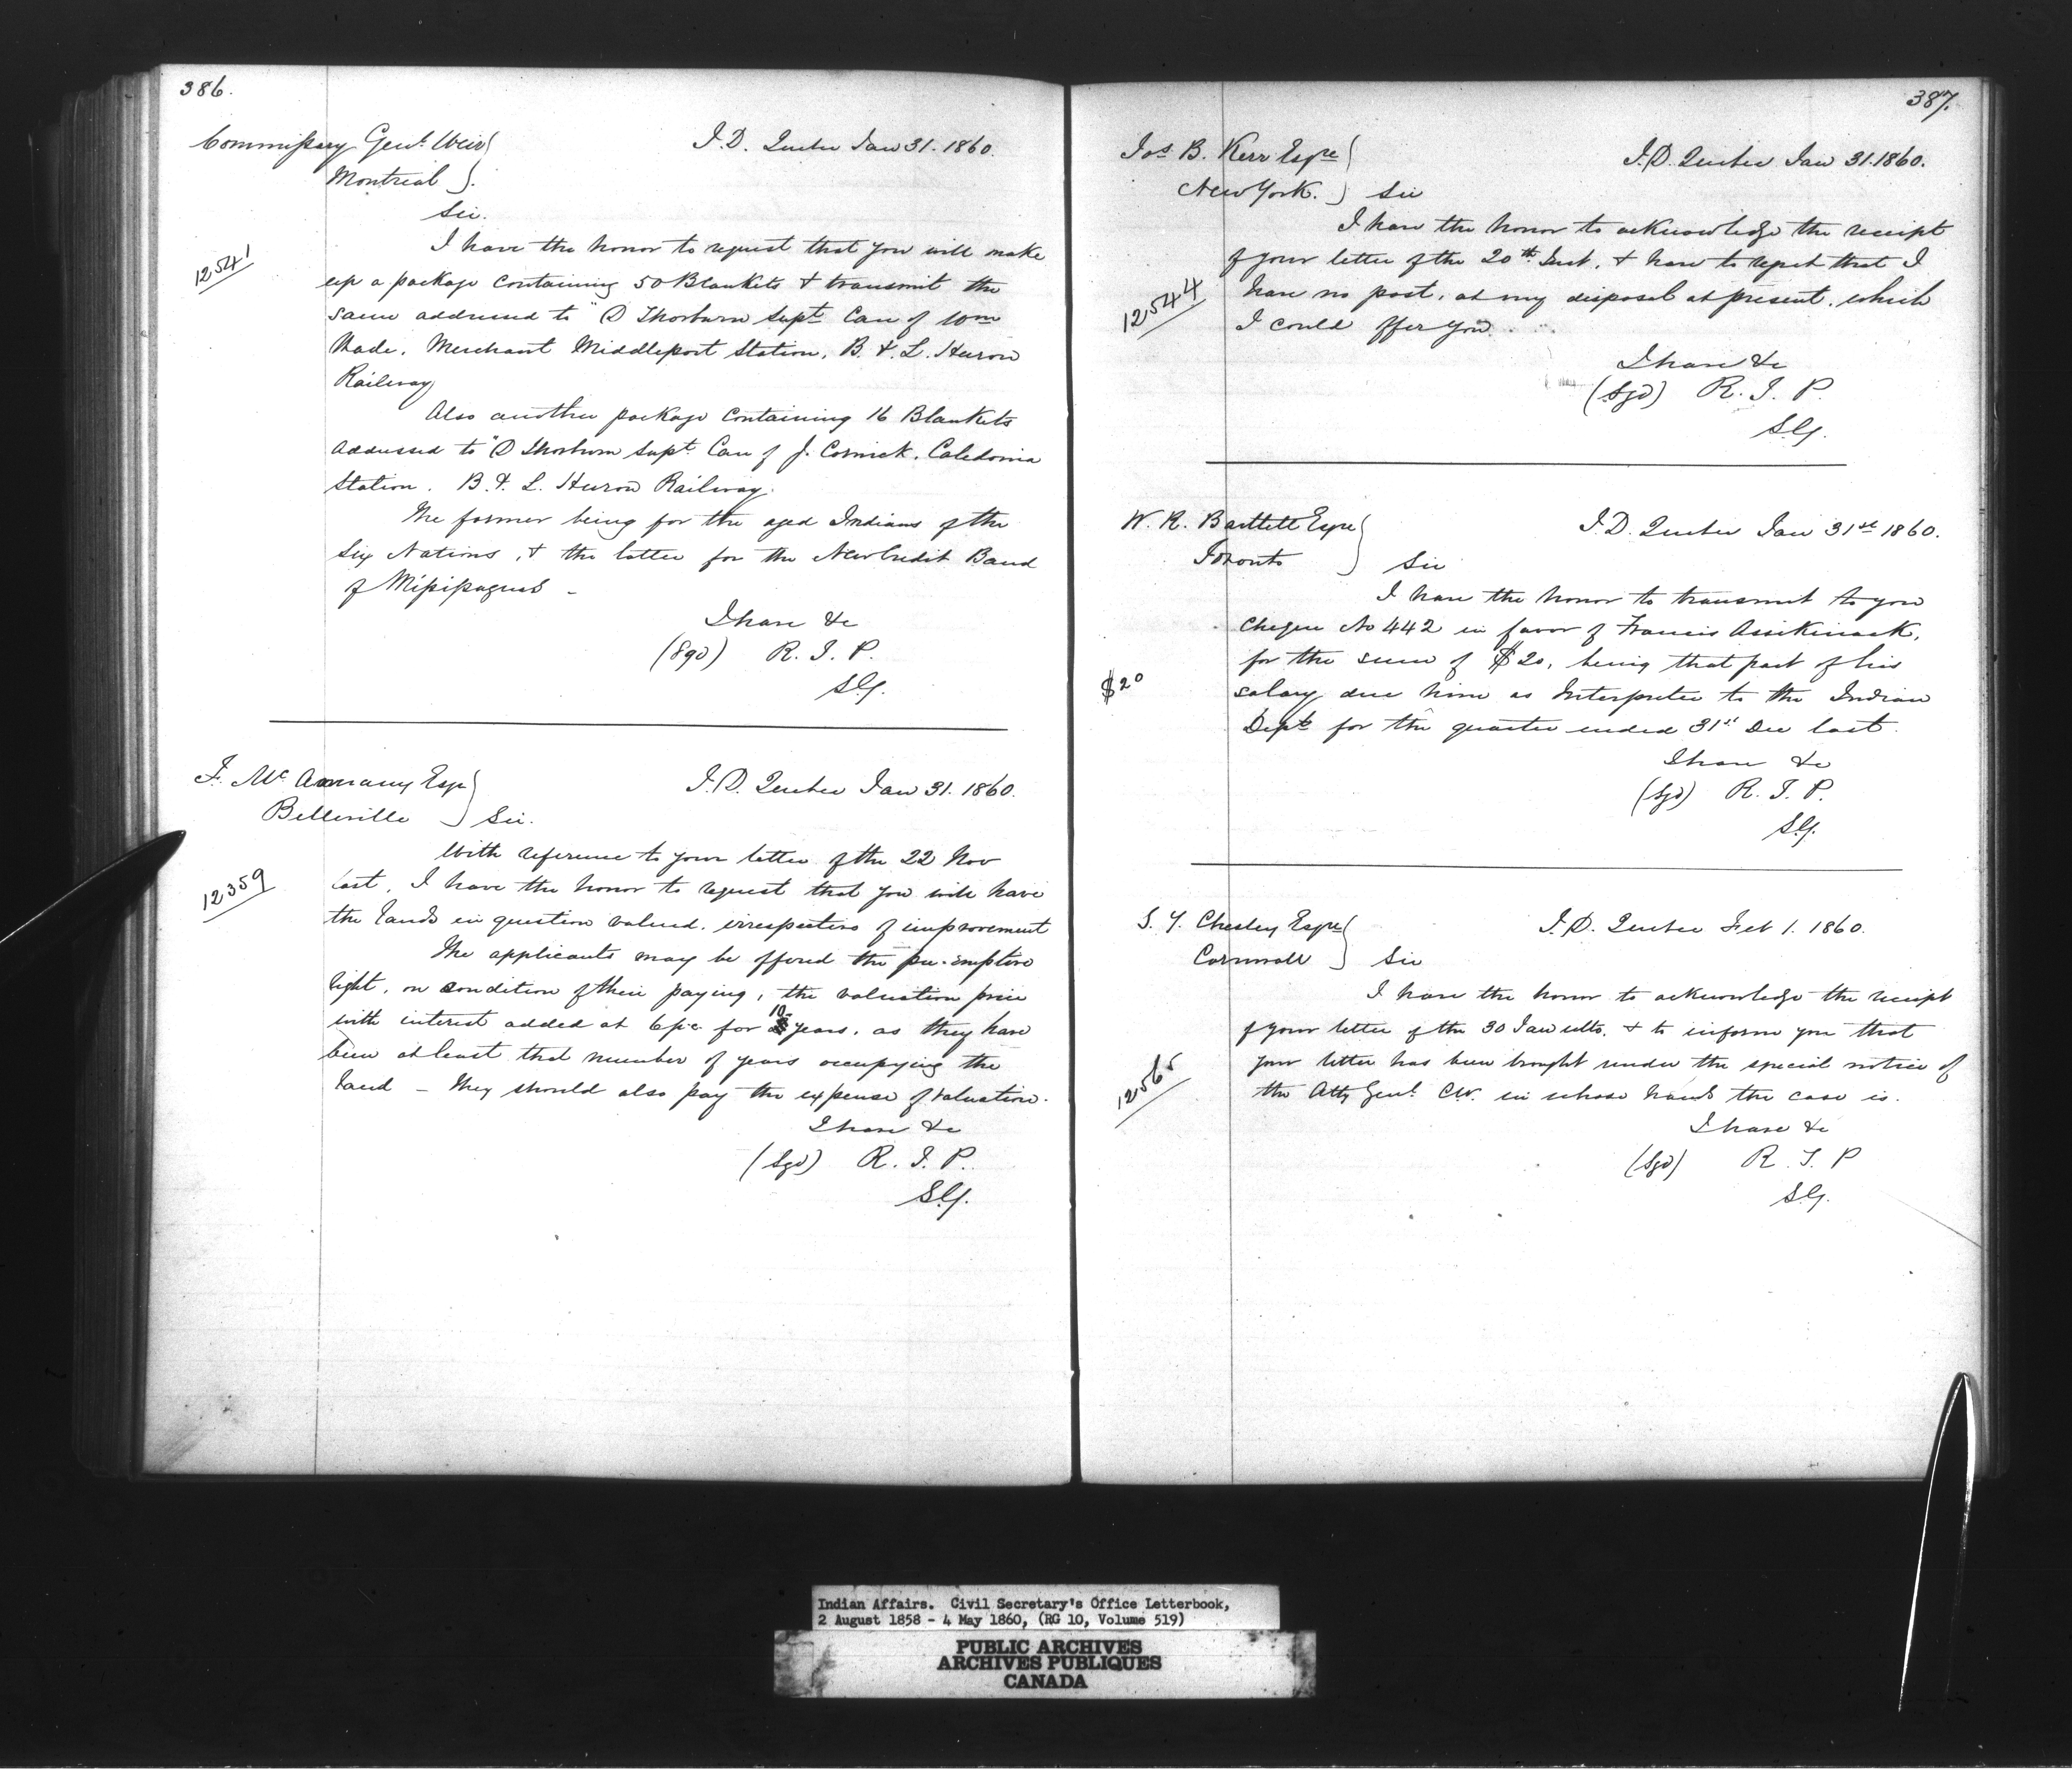 386.
Commissary Genl. Weir
Montreal
I.D. Quebec Jan 31. 1860.
Sir.
12541
I have the honor to request that you will make
up a package containing 50 Blankets & transmit the
same addressed to "D Thorburn Supt. Care of Wm
Wade, Merchant Middleport Station, B. & L. Huron
Railway
Also another package containing 16 Blankets
addressed to "D Thorburn Supt. Care of J. Cornick, Caledonia
Station. B. & L. Huron Railway.
The former being for the aged Indians of the
Six Nations, & the latter for the New Credit Band
of Missisaguas –
I have &c
(Sgd) R. J. P.
S.G.
F. McAnnany Esqr
Belleville
I.D. Quebec Jan 31. 1860.
Sir.
12359
With reference to your letter of the 22 Nov
last, I have the honor to request that you will have
the lands in question valued, irrespective of improvement
The applicants may be offered the pre-emptive
right, on condition of their paying, the valuation price
with interest added at 6 p.c. for 10 years, as they have
been at least that number of years occupying the
land – they should also pay the expense of valuation.
I have &c
(Sgd) R. J. P.
S.G.
387.
Jos. B. Kerr Esqre
New York.
I.D. Quebec Jan 31. 1860.
Sir
12544
I have the honor to acknowledge the receipt
of your letter of the 20th Inst. & have to regret that I
have no post, at my disposal at present, which
I could offer you.
I have &c
(Sgd) R. J. P.
S.G.
W. R. Bartlett Esqre
Toronto
I.D. Quebec Jan 31st 1860.
Sir
I have the honor to transmit to you
Cheque No 442 in favor of Francis Assikinack,
$20
for the sum of $20, being that part of his
salary due him as Interpreter to the Indian
Dept. for the quarter ended 31st Dec last.
I have &c
(Sgd) R. J. P.
S.G.
S. Y. Chesley Esqre
Cornwall
I.D. Quebec Feb 1. 1860.
Sir
12565
I have the honor to acknowledge the receipt
of your letter of the 30 Jan ulto. & to inform you that
your letter has been brought under the special notice of
the Atty Genl. C.W. in whose hands the case is.
I have &c
(Sgd) R. J. P
S.G.
Indian Affairs. Civil Secretary's Office Letterbook,
2 August 1858 - 4 May 1860, (RG 10, Volume 519)
PUBLIC ARCHIVES
ARCHIVES PUBLIQUES
CANADA